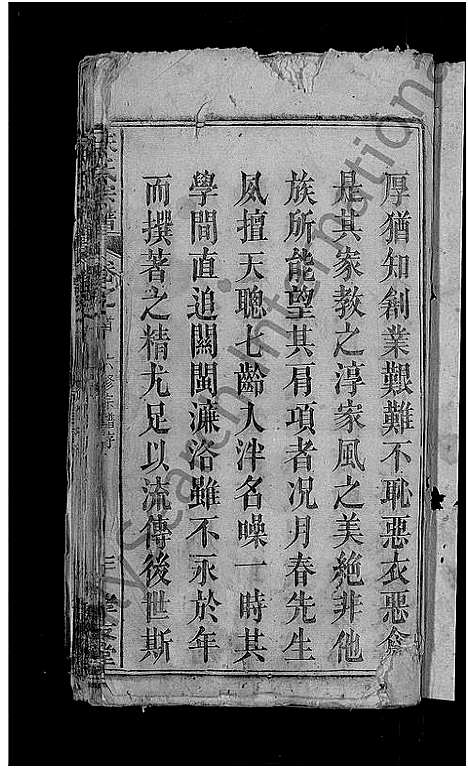 厚猶知創業艱難不恥惡衣惡食
是其家敎之淳家風之美絶非他
族所能望其肩項者况月春先生
夙擅天聰七齡入泮名噪一時其
學問直追關閩濂洛雖不永於年
而撰著之精尤足以流傳後世斯
氏宗譜 卷之首
堂